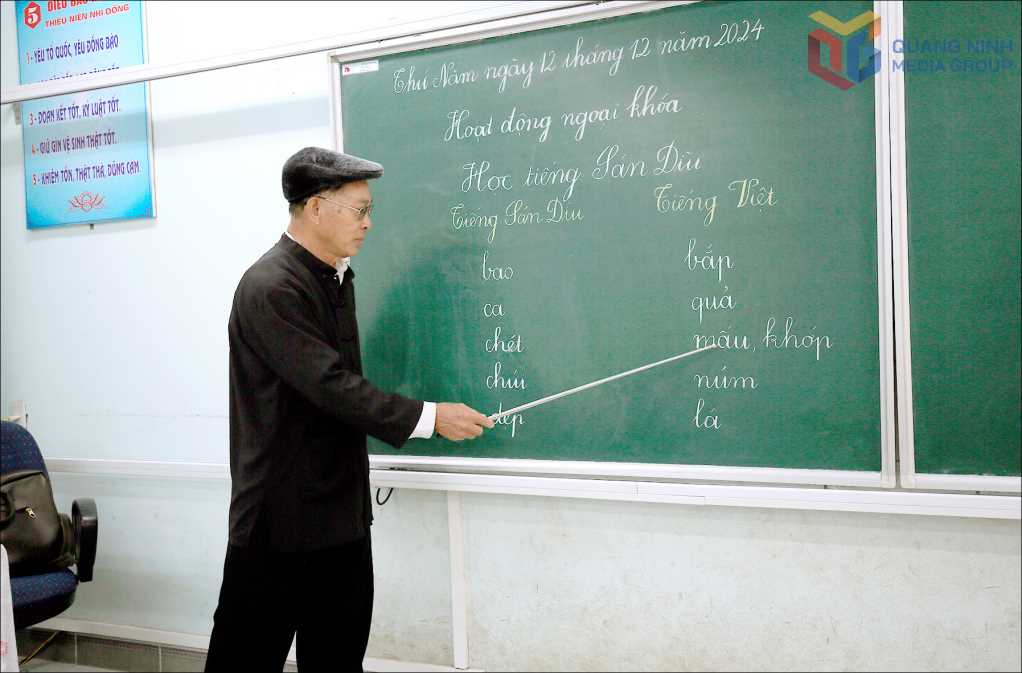 5 ĐIỀU BÁC
THIẾU NIÊN NHI ĐỒNG
1 - YÊU TỔ QUỐC, YÊU ĐỒNG BÀO
3 - ĐOÀN KẾT TỐT, KỶ LUẬT TỐT.
4 - GIỮ GÌN VỆ SINH THẬT TỐT.
5 - KHIÊM TỐN, THẬT THÀ, DŨNG CẢM.
Thứ Năm ngày 12 tháng 12 năm 2024
Hoạt động ngoại khóa
Học tiếng Sán Dìu
Tiếng Sán Dìu Tiếng Việt
bao bắp
ca quả
chét mấu, khớp
chíu núm
dẹp lá
QUANG NINH
MEDIA GROUP